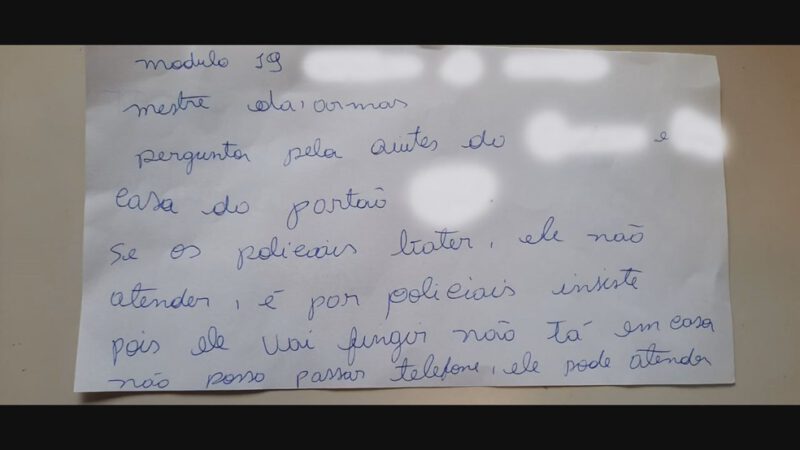 modulo 19
mestre da, armas
pergunta pela antes do e
casa do portão
Se os policiais bater, ele não
atender, é por policiais insiste
pois ele vai fingir não tá em casa
não posso passar telefone, ele pode atender